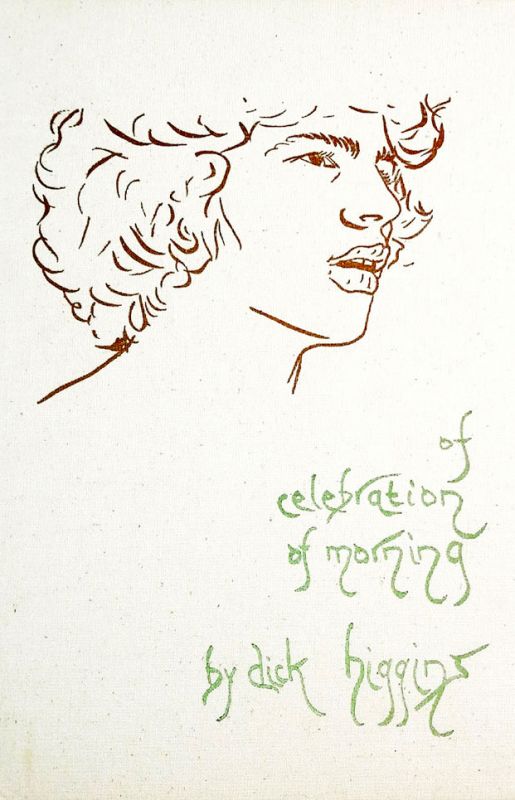 of
celebration
of morning
by dick higgins